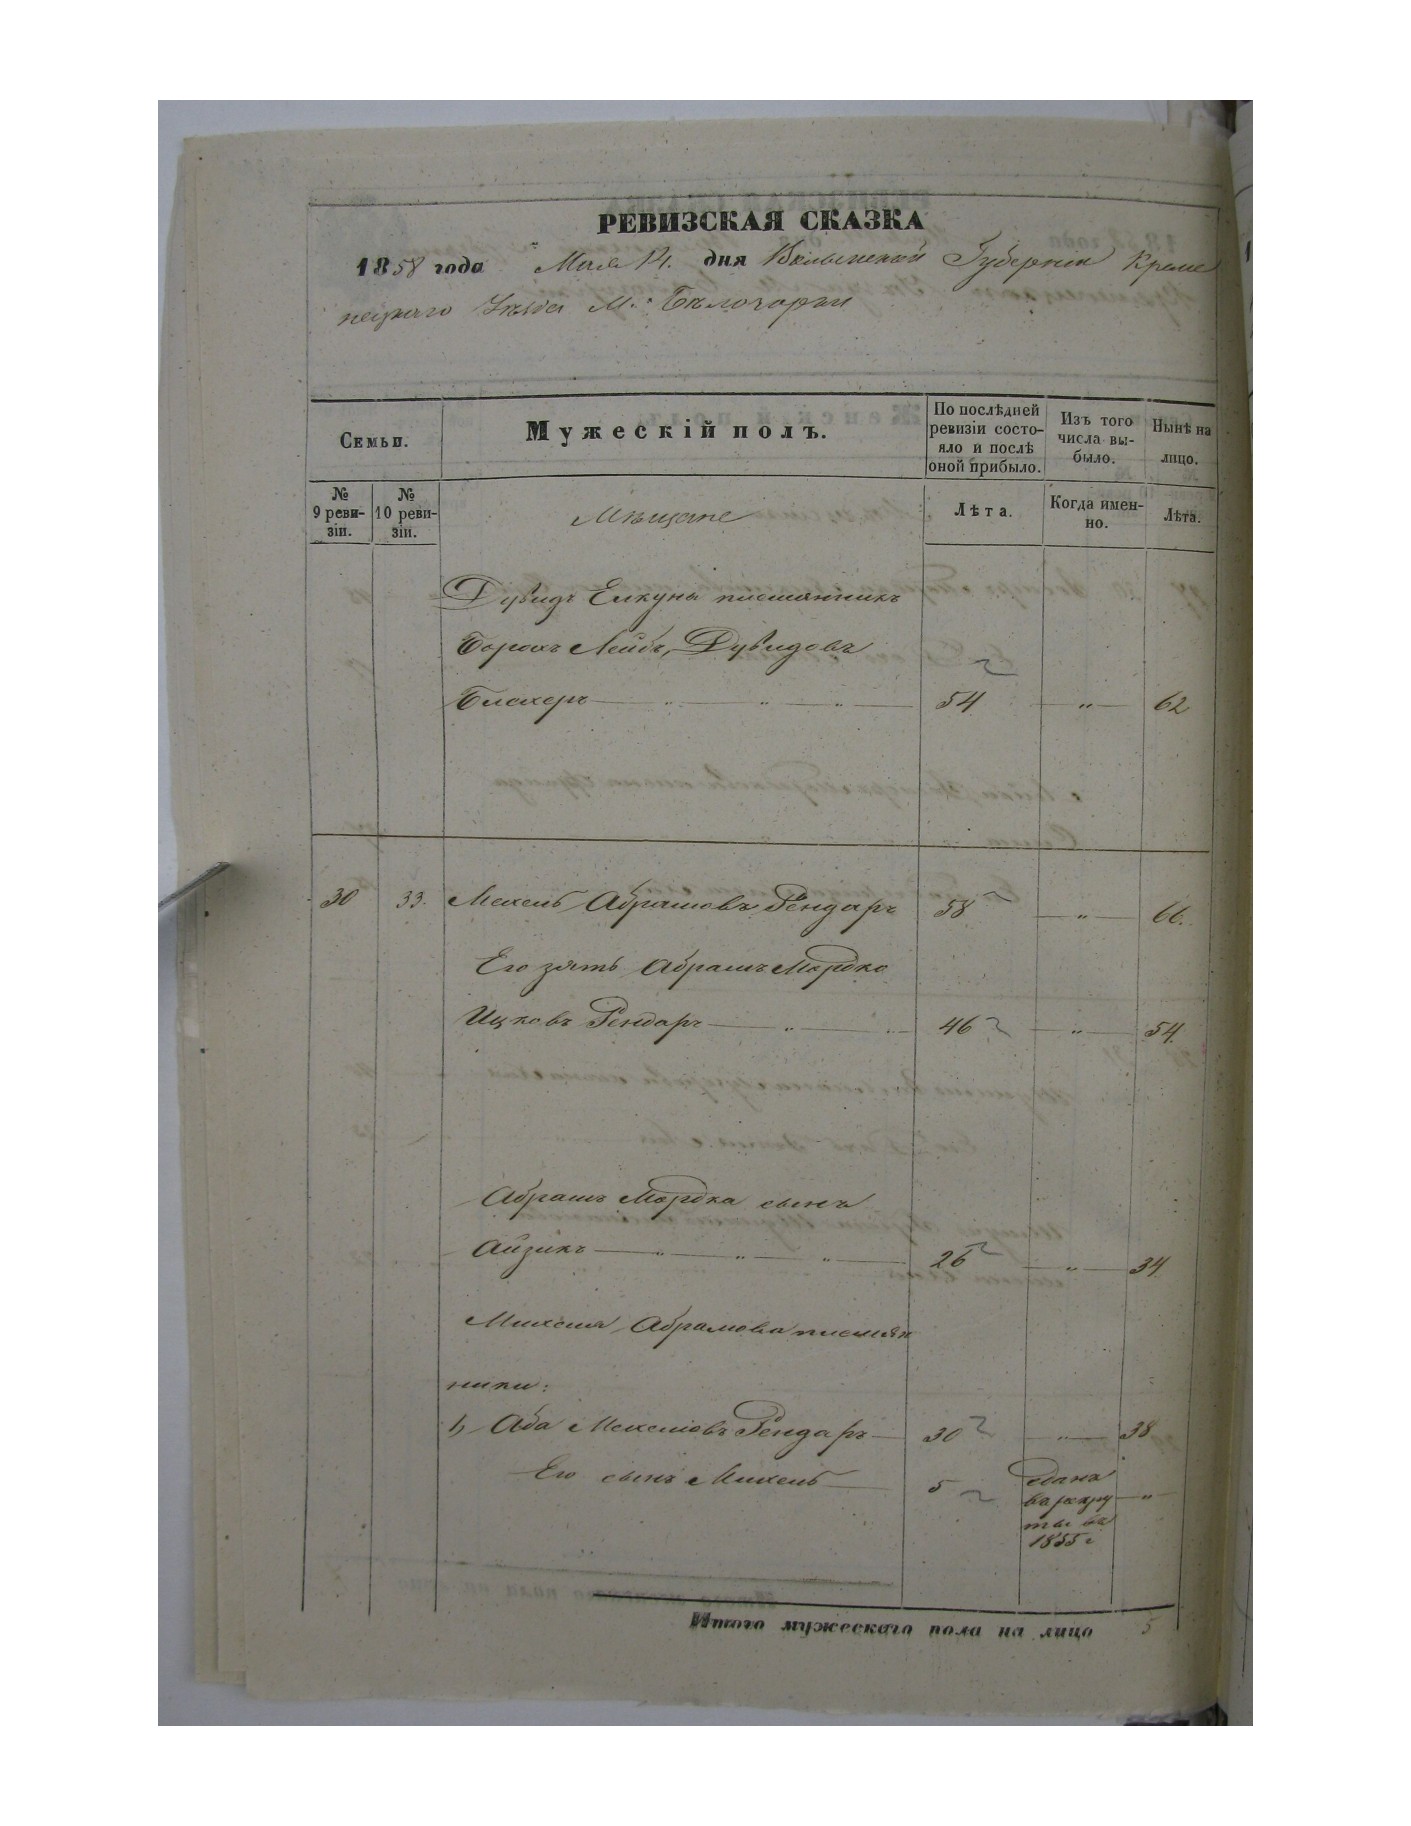 РЕВИЗСКАЯ СКАЗКА
1858 года Мая 14. дня Волынской Губернии Креме
нецкаго Уѣзда М. Бѣлозорки
Семьи.
Мужескій полъ.
По послѣдней ревизіи состо-
яло и послѣ
оной прибыло.
Изъ того
числа вы-
было.
Нынѣ на
лицо.
№ 9 реви-
зіи.
№ 10 реви-
зіи.
Мѣщане
Лѣта.
Когда имен-
но.
Лѣта.
Дувидъ Елкуны племянникъ
Борохъ Лейбъ, Дувидовъ
Блехеръ 54 " 62
30 33. Мехель Абрамовъ Рендаръ 58 " 66.
Его зять Абрамъ Мордко
Ицковъ Рендаръ 46 " 54.
Абрамъ Мордка сынъ
Айзикъ 26 " 34.
Михеля Абрамова племян
ники:
1, Аба Мехелювъ Рендаръ 30 " 38
Его сынъ Михель 5 сданъ
въ рекру "
ты въ
1855 г
Итого мужескаго пола на лицо 5